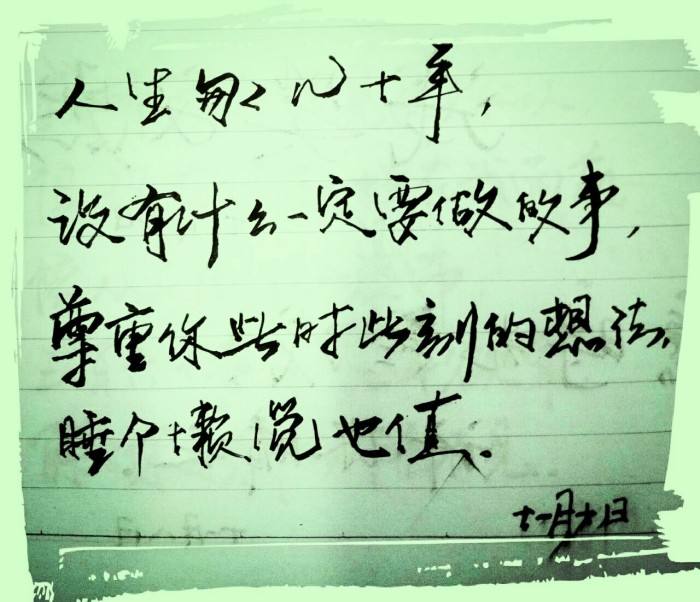 人生匆匆几十年,
没有什么一定要做的事,
尊重你此时此刻的想法,
睡个懒觉也值.
十一月十日